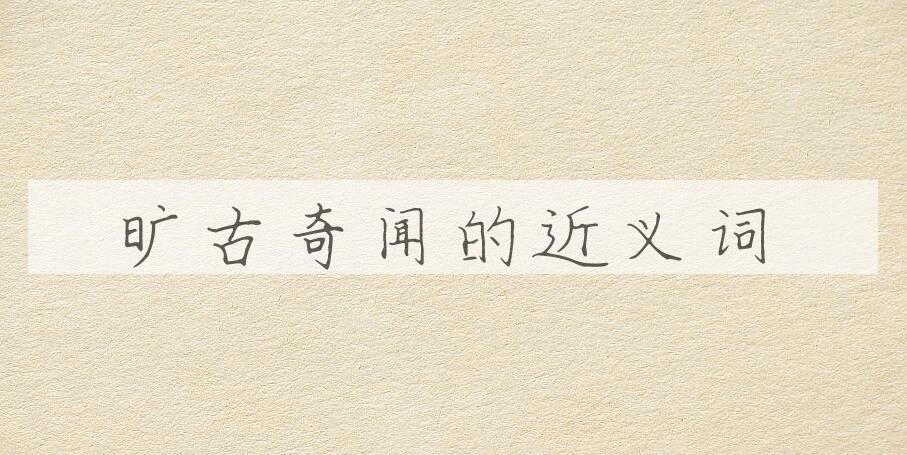 旷古奇闻的近义词